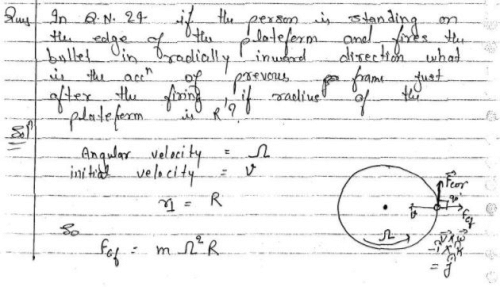 Ques In Q.N. 29 if the person is standing on
the edge of the plateform and fires the
bullet in radially inward direction what
is the accⁿ of prevous frame just
after the firing if radius of the
plateform is R'?
Solⁿ
Angular velocity = Ω
initial velocity = v
r = R
So
F_cf = m Ω² R
F_cor
90°
v
F_cf
Ω
= ĵ